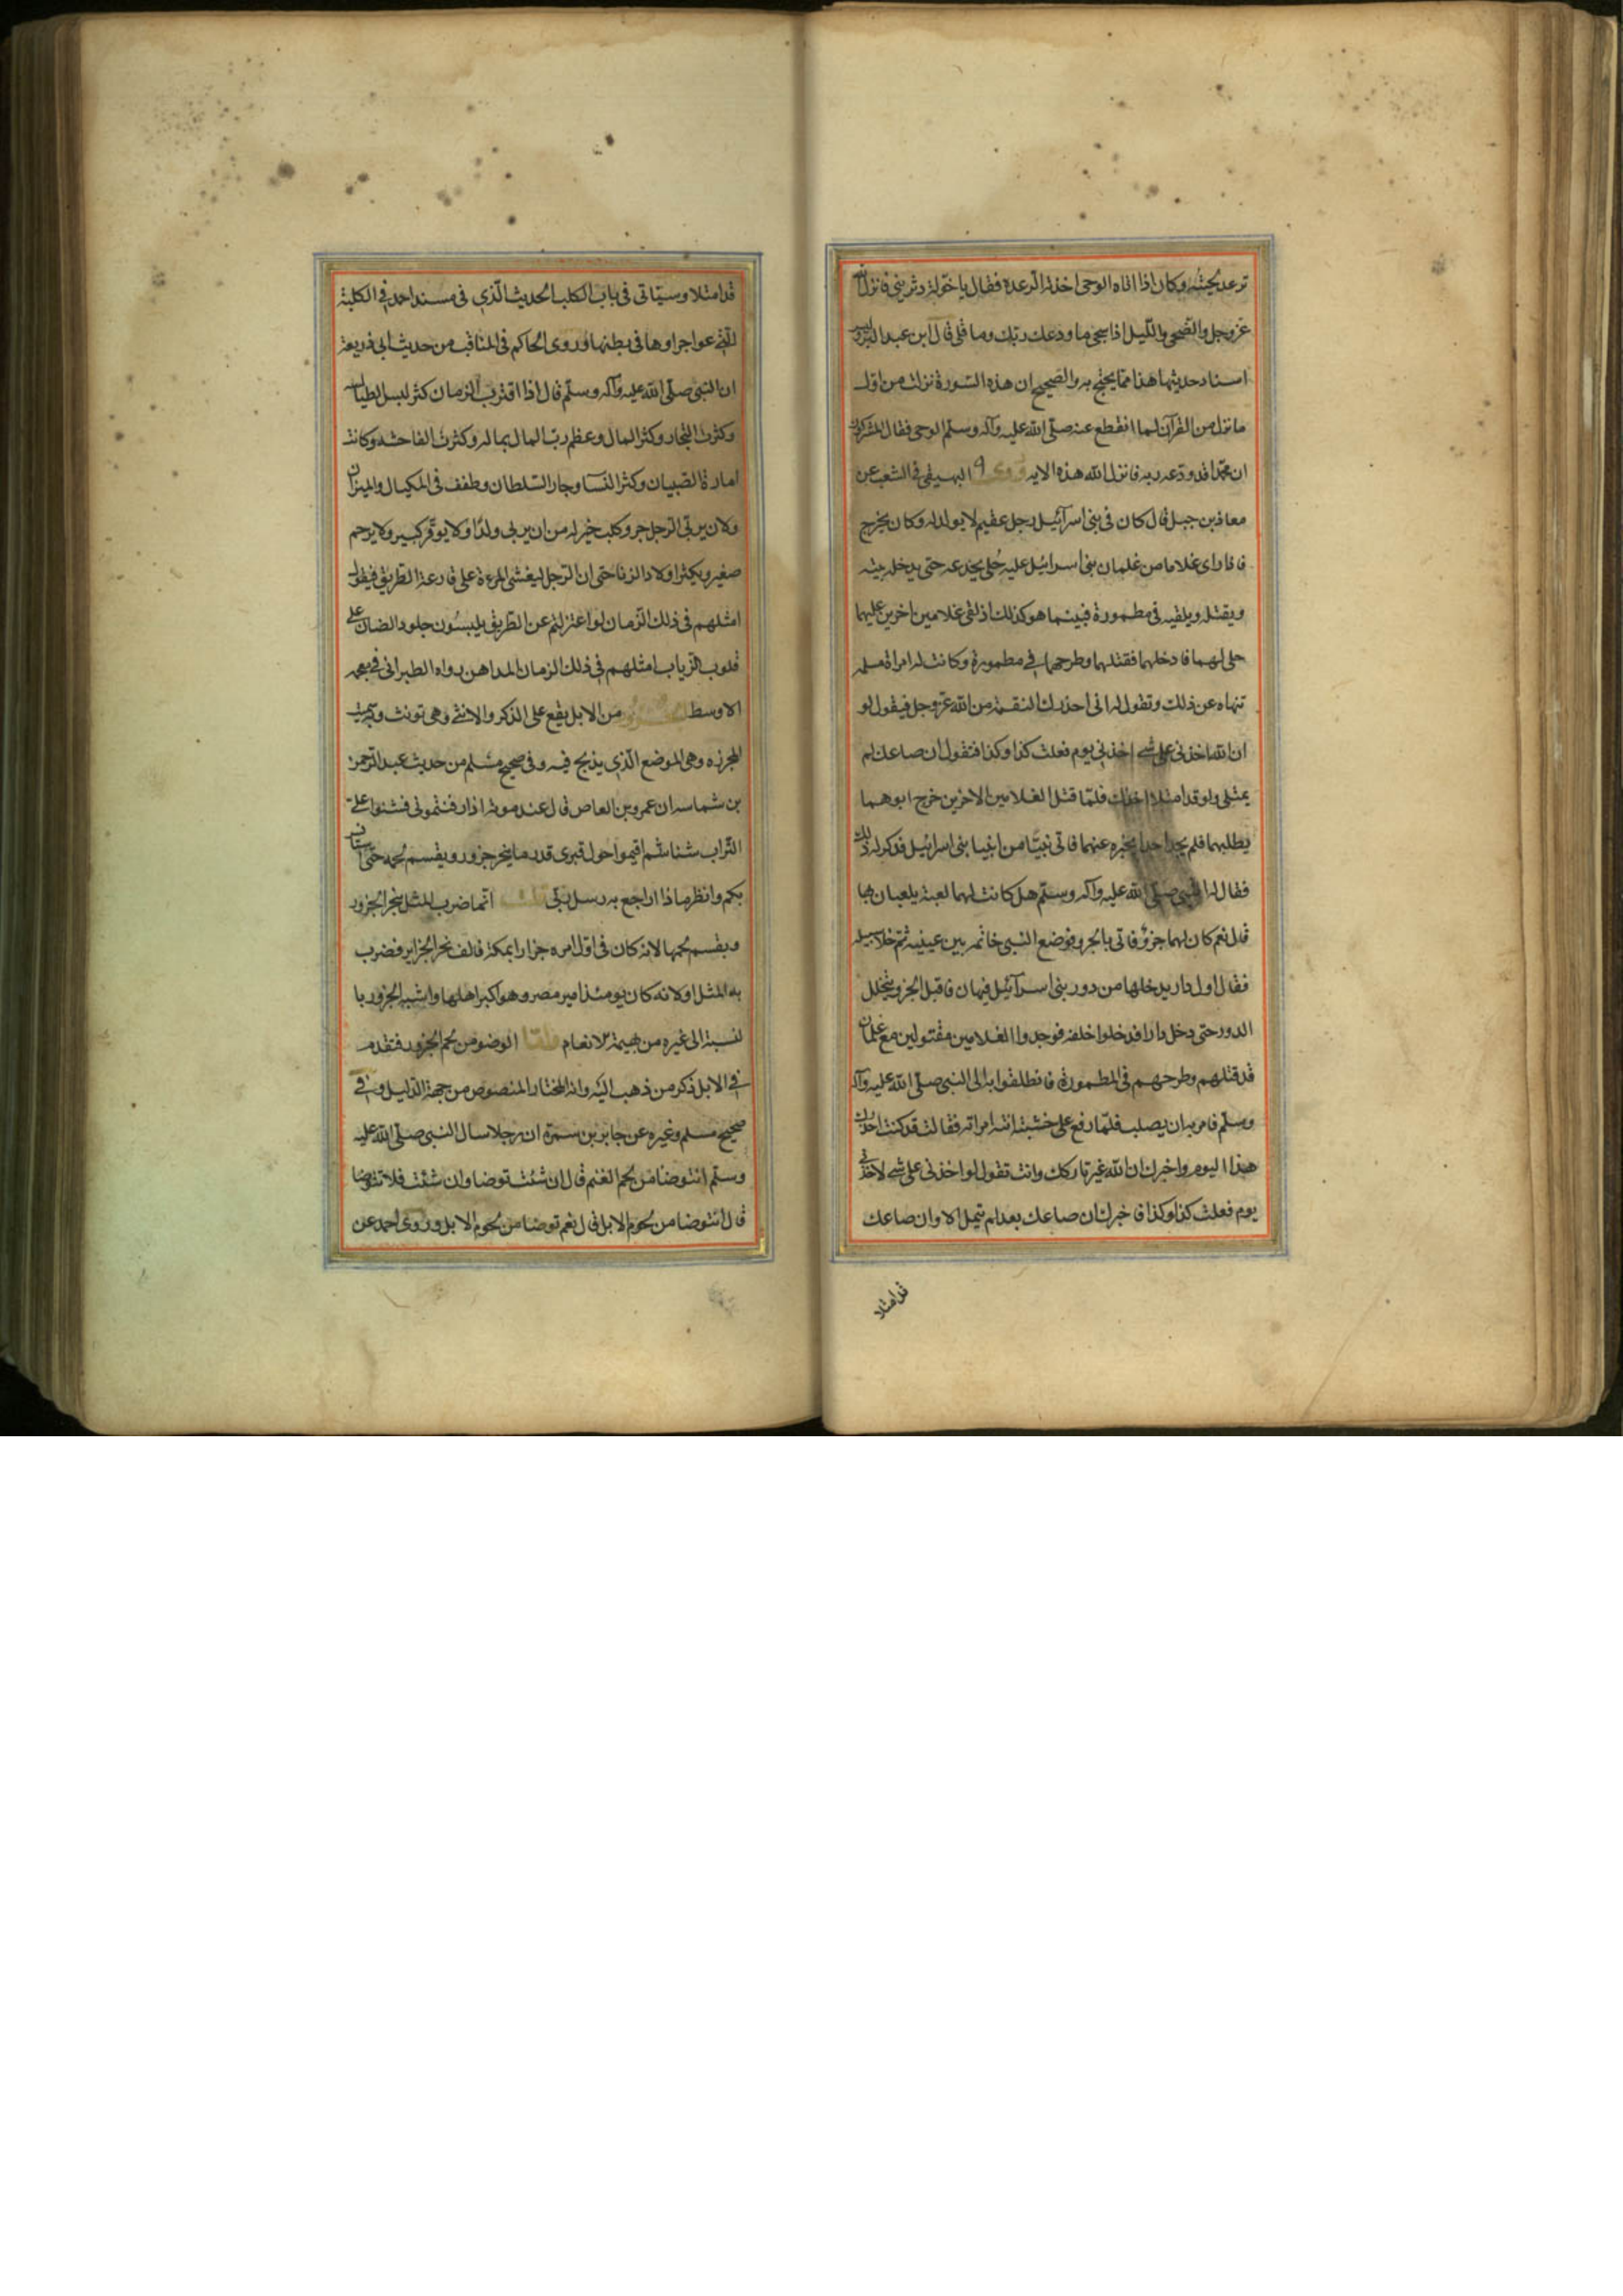 ترعد لحيته وكان اذا اتاه الوحى اخذته الرعدة فقال يا خولة دثرينى فانزل الله
عز وجل والضحى والليل اذا سجى ما ودعك ربك وما قلى قال ابن عبد البر وليس
اسناد حديثها هذا مما يحتج به والصحيح ان هذه السورة نزلت من اول
ما نزل من القرآن لما انقطع عنه صلى الله عليه وآله وسلم الوحى فقال المشركون
ان محمدا قد ودعه ربه فانزل الله هذه الايه وروى البيهقى فى الشعب عن
معاذ بن جبل قال كان فى بنى اسرآئيل رجل عقيم لا يولد له وكان يخرج
فاذا راى غلاما من غلمان بنى اسرائيل عليه حلى يخدعه حتى يدخله بيته
ويقتله ويلقيه فى مطمورة فبينما هو كذلك اذ لقى غلامين اخرين عليهما
حلى لهما فادخلهما فقتلهما وطرحهما فى مطمورة وكانت له امراة مسلمه
تنهاه عن ذلك وتقول له انى احذرك النقمة من الله عز وجل فيقول لو
ان الله اخذنى على شى اخذنى يوم فعلت كذا وكذا فتقول ان صاعك لم
يمتلى ولو قد امتلا اخذت فلما قتل الغلامين الاخرين خرج ابوهما
يطلبهما فلم يجد احدا يخبره عنهما فاتى نبيا من انبيا بنى اسرائيل فذكر له ذلك
فقال له النبى صلى الله عليه وآله وسلم هل كانت لهما لعبة يلعبان بها
قال نعم كان لهما جرو فاتى بالجرو فوضع النبى خاتمه بين عينيه ثم خلا سبيله
فقال اول دار يدخلها من دور بنى اسرآئيل فيها ن فاقبل الجرو يتخلل
الدور حتى دخل دارا فدخلوا خلفه فوجدوا الغلامين مقتولين مع غلمان
قد قتلهم وطرحهم فى المطمورة فانطلقوا به الى النبى صلى الله عليه وآله
وسلم فامر به ان يصلب فلما رفع على خشبته اتته امراته فقالت قد كنت احذرك
هذا اليوم واخبرك ان الله غير تاركك وانت تقول لو اخذنى على شى لاخذنى
يوم فعلت كذا وكذا فاخبرك ان صاعك بعد لم يمتل الا وان صاعك
قد امتلا
قد امتلا وسياتى فى باب الكلب الحديث الذى فى مسند احمد فى الكلبة
التى عوا جراوها فى بطنها وروى الحاكم فى المناقب من حديث ابى ذر يعنى
ان النبى صلى الله عليه وآله وسلم قال اذا اقترب الزمان كثر لبس الطيالس
وكثرت التجار وكثر المال وعظم رب المال بماله وكثرت الفاحشه وكانت
امارة الصبيان وكثر النسآ وجار السلطان وطفف فى المكيال والميزان
ولان يربى الرجل جرو كلب خير له من ان يربى ولدا ولا يوقر كبير ولا يرحم
صغير ويكثر اولاد الزنا حتى ان الرجل ليغشى المرءة على قارعة الطريق فيقول
امثلهم فى ذلك الزمان لو اعتزلتم عن الطريق يلبسون جلود الضان على
قلوب الزياب امثلهم فى ذلك الزمان المداهن رواه الطبرانى فى معجمه
الاوسط من الابل يقع على الذكر والانثى وهى تونث وبه سميت
المجزره وهى الموضع الذى يذبح فيه وفى صحيح مسلم من حديث عبد الرحمن
بن شماسه ان عمرو بن العاص قال عند موته اذا دفنتمونى فشنوا على
التراب شنا ثم اقيموا حول قبرى قدر ما ينحر جزور ويقسم لحمه حتى استانس
بكم وانظر ماذا اراجع به رسل ربى قلت انما ضرب المثل بنحر الجزور
ويقسم لحمها لانه كان فى اول امره جزارا بمكة فالف نحر الجزاير فضرب
به المثل او لانه كان يومئذ امير مصر وهو اكبر اهلها واشبه الجزور با
لنسبة الى غيره من بهيمة الانعام الوضو من لحم الجزور فتقدم
فى الابل ذكر من ذهب اليه وانه المختار المنصوص من جهة الدليل وفى
صحيح مسلم وغيره عن جابر بن سمرة ان رجلا سال النبى صلى الله عليه
وسلم انتوضا من لحم الغنم قال ان شئت توضا وان شئت فلا تتوضا
قال انتوضا من لحوم الابل قال نعم توضا من لحوم الابل وروى احمد عن